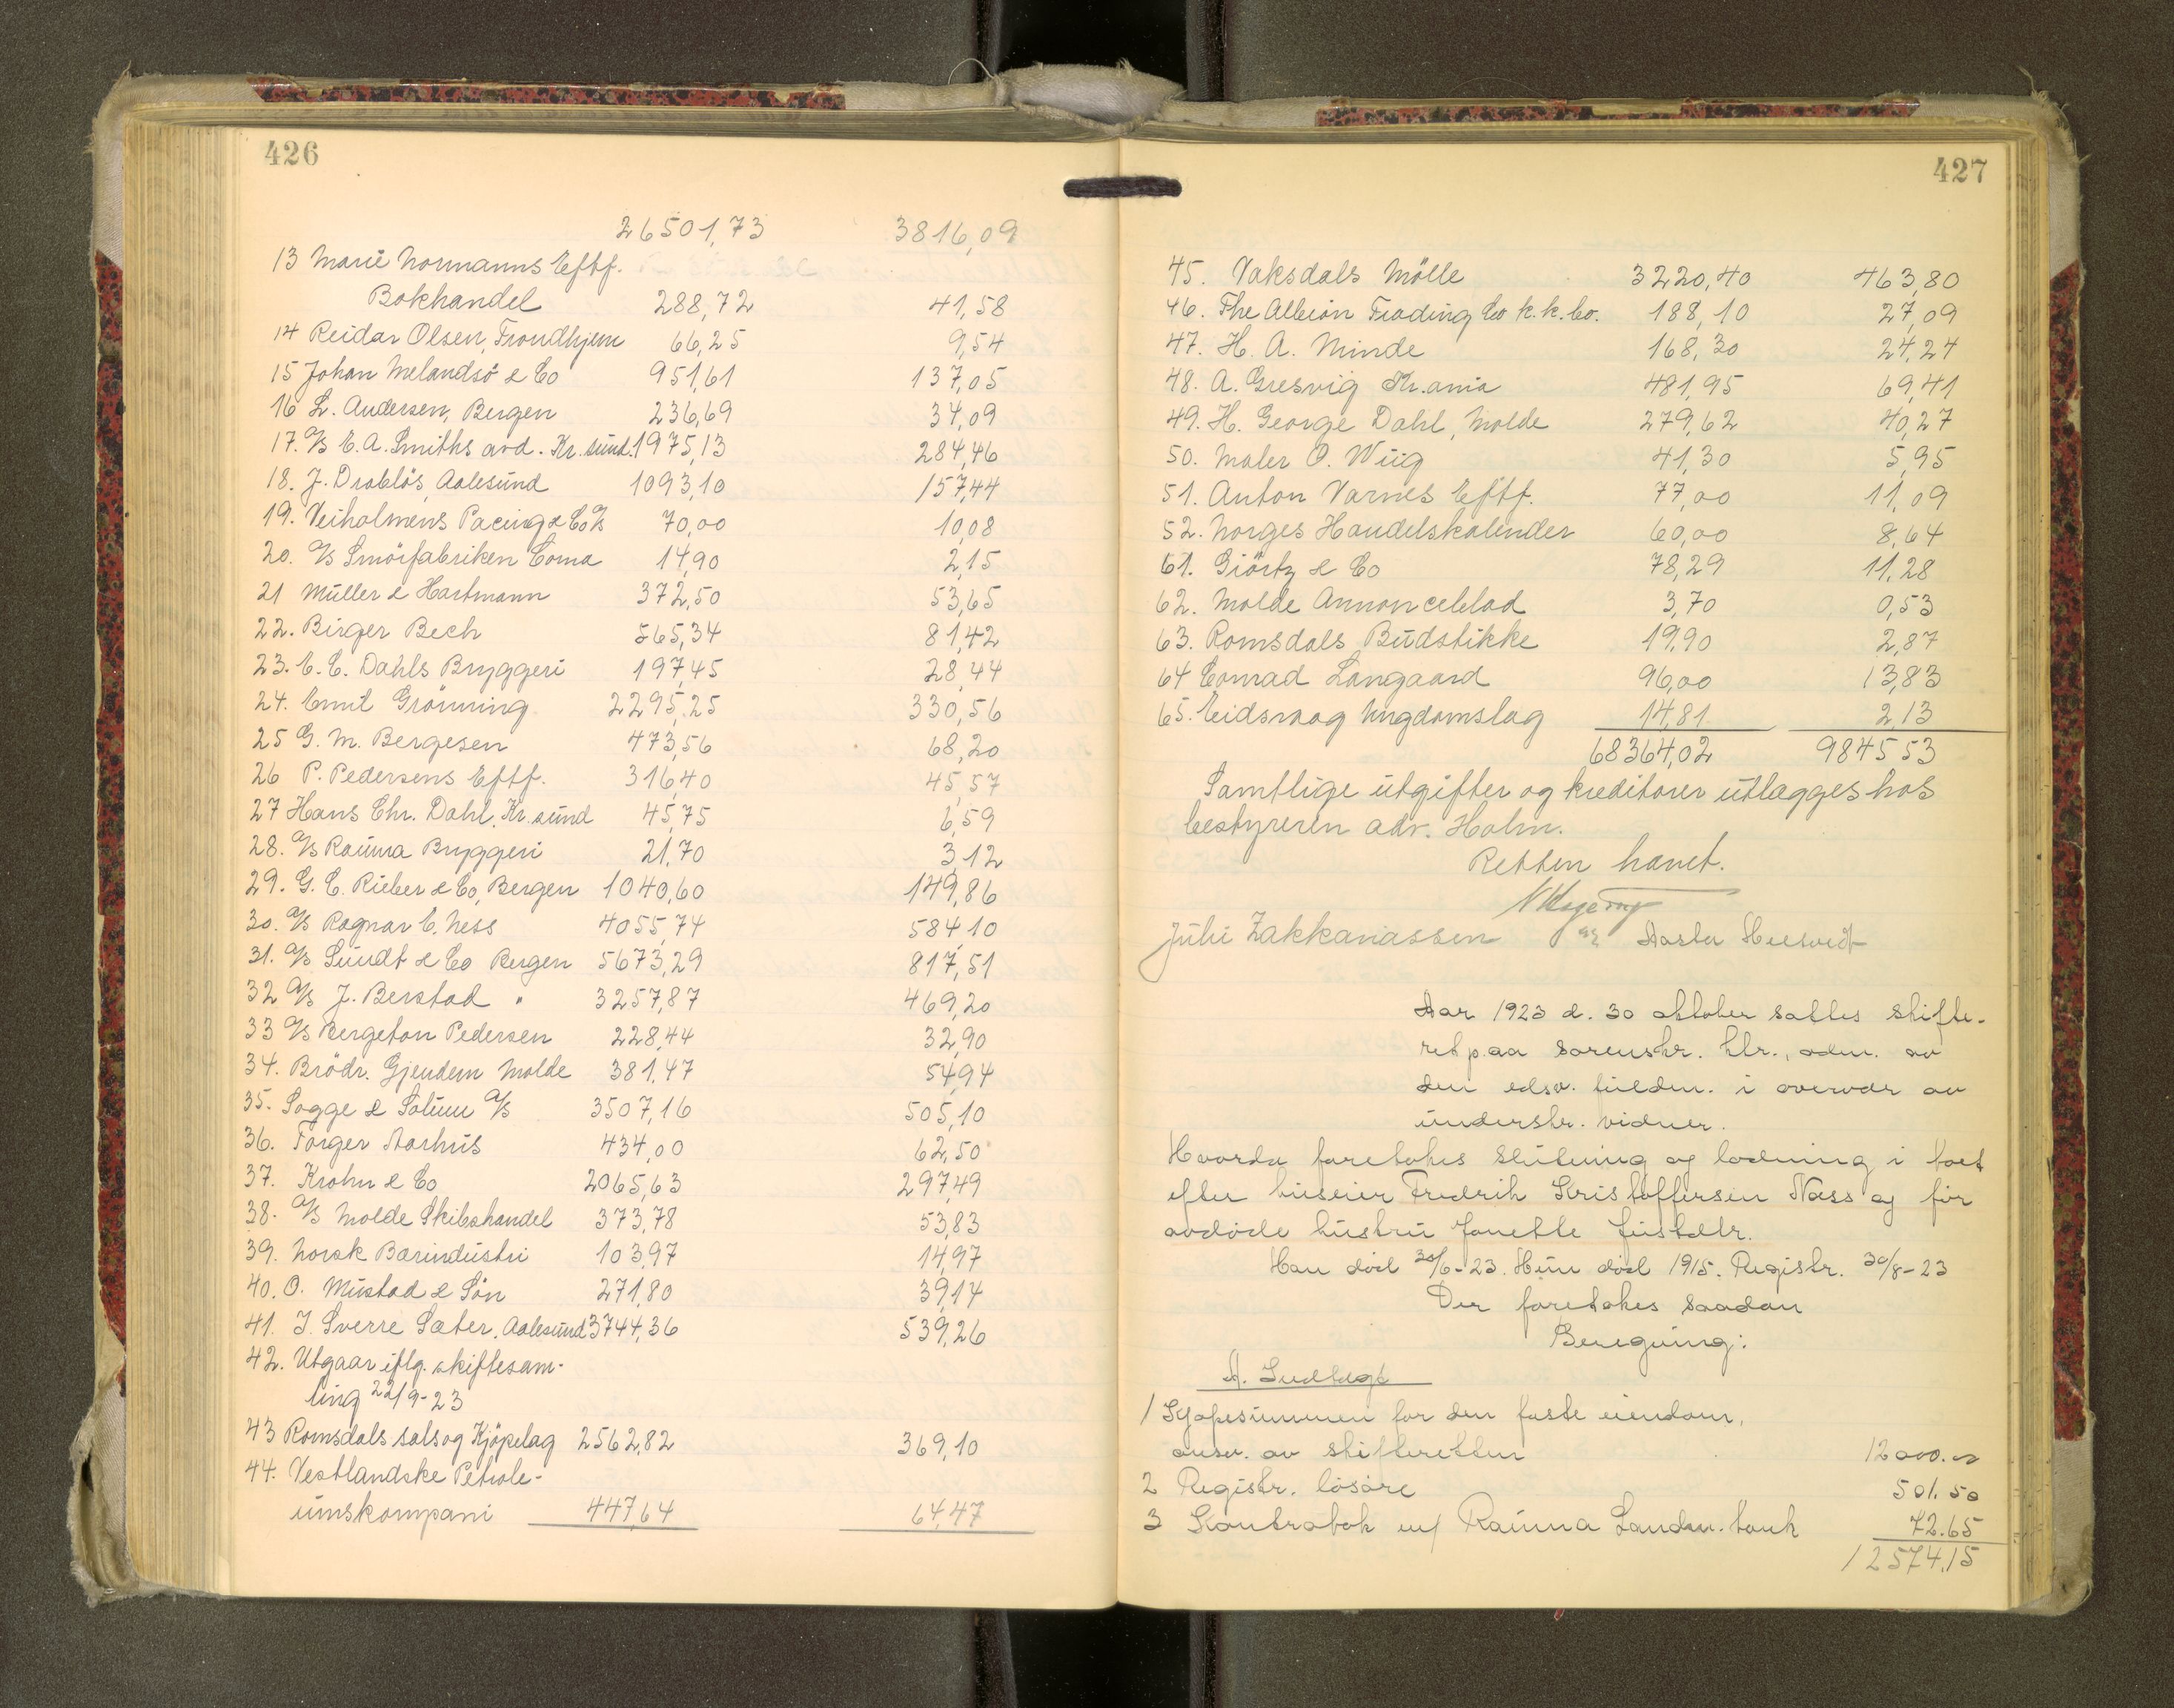 426
26501,73 3816,09
13 Marie Normanns Eftf.
Bokhandel 288,72 41,58
14 Reidar Olsen, Trondhjem 66,25 9,54
15 Johan Melandsö & Co 951,61 137,05
16 L. Andersen, Bergen 236,69 34,09
17. A/S E. A. Smiths avd. Kr.sund. 1975,13 284,46
18. J. Drabløs, Aalesund 1093,10 157,44
19. Veiholmens Pacing & Co A/S 70,00 10,08
20. A/S Smörfabriken Coma 14,90 2,15
21 Müller & Hartmann 372,50 53,65
22. Birger Bech 565,34 81,42
23. E. C. Dahls Bryggeri 197,45 28,44
24. Emil Grönning 2295,25 330,56
25 G. M. Bergesen 473,56 68,20
26 P. Pedersens Eftf. 316,40 45,57
27 Hans Chr. Dahl, Kr.sund 45,75 6,59
28. A/S Rauma Bryggeri 21,70 3,12
29. G. C. Rieber & Co, Bergen 1040,60 149,86
30. A/S Ragnar E. Ness 4055,74 584,10
31. A/S Sundt & Co Bergen 5673,29 817,51
32 A/S J. Berstad " 3257,87 469,20
33 A/S Bergeton Pedersen 228,44 32,90
34. Brödr. Gjendem Molde 381,47 54,94
35. Sogge & Solum A/S 3507,16 505,10
36. Torger Aarhus 434,00 62,50
37. Krohn & Co 2065,63 297,49
38. A/S Molde Skibshandel 373,78 53,83
39. Norsk Bærindustri 103,97 14,97
40. O. Mustad & Sön 271,80 39,14
41. J. Sverre Sæter, Aalesund 3744,36 539,26
42. Utgaar iflg. skiftesam-
ling 22/9-23
43 Romsdals salsog Kjöpelag 2562,82 369,10
44. Vestlandske Petrole-
umskompani 447,64 64,47
427
45. Vaksdals Mölle 3220,40 463,80
46. The Albion Trading Co k.k. Co. 188,10 27,09
47. H. A. Minde 168,30 24,24
48. A. Gresvig Kr.ania 481,95 69,41
49. H. George Dahl, Molde 279,62 40,27
50. Maler O. Wiig 41,30 5,95
51. Anton Varnes Eftf. 77,00 11,09
52. Norges Handelskalender 60,00 8,64
61. Giörtz & Co 78,29 11,28
62. Molde Annonceblad 3,70 0,53
63. Romsdals Budstikke 19,90 2,87
64 Conrad Langaard 96,00 13,83
65. Eidsvaag Ungdomslag 14,81 2,13
68364,02 9845,53
Samtlige utgifter og kreditorer utlægges hos
bestyreren adv. Holm.
Retten hævet.
Juhi Zakkariassen Aasta
Aar 1923 d. 30 oktober sattes skifte-
ret paa sorenskr. ktr., adm. av
den edsv. fuldm. i overvær av
underskr. vidner.
Hvorda foretokes slutning og lodning i boet
efter huseier Fredrik Kristoffersen Næss og før
avdøde hustru Janette Justdtr.
Han død 30/6-23. Hun død 1915. Registr. 30/8-23
Der foretokes saadan
Beregning:
A. Indtægt
1 Kjøpesummen for den faste eiendom,
ansv. av skifteretten 12000.00
2 Registr. løsøre 501.50
3 Kontrabok m/ Rauma Landm. bank 72.65
12574,15